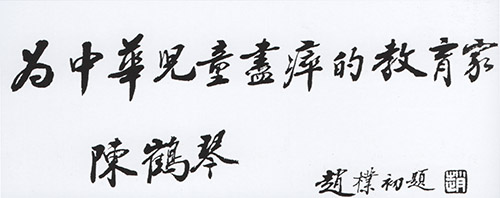 为中華児童盡瘁的教育家
陳鶴琴
趙樸初題
趙